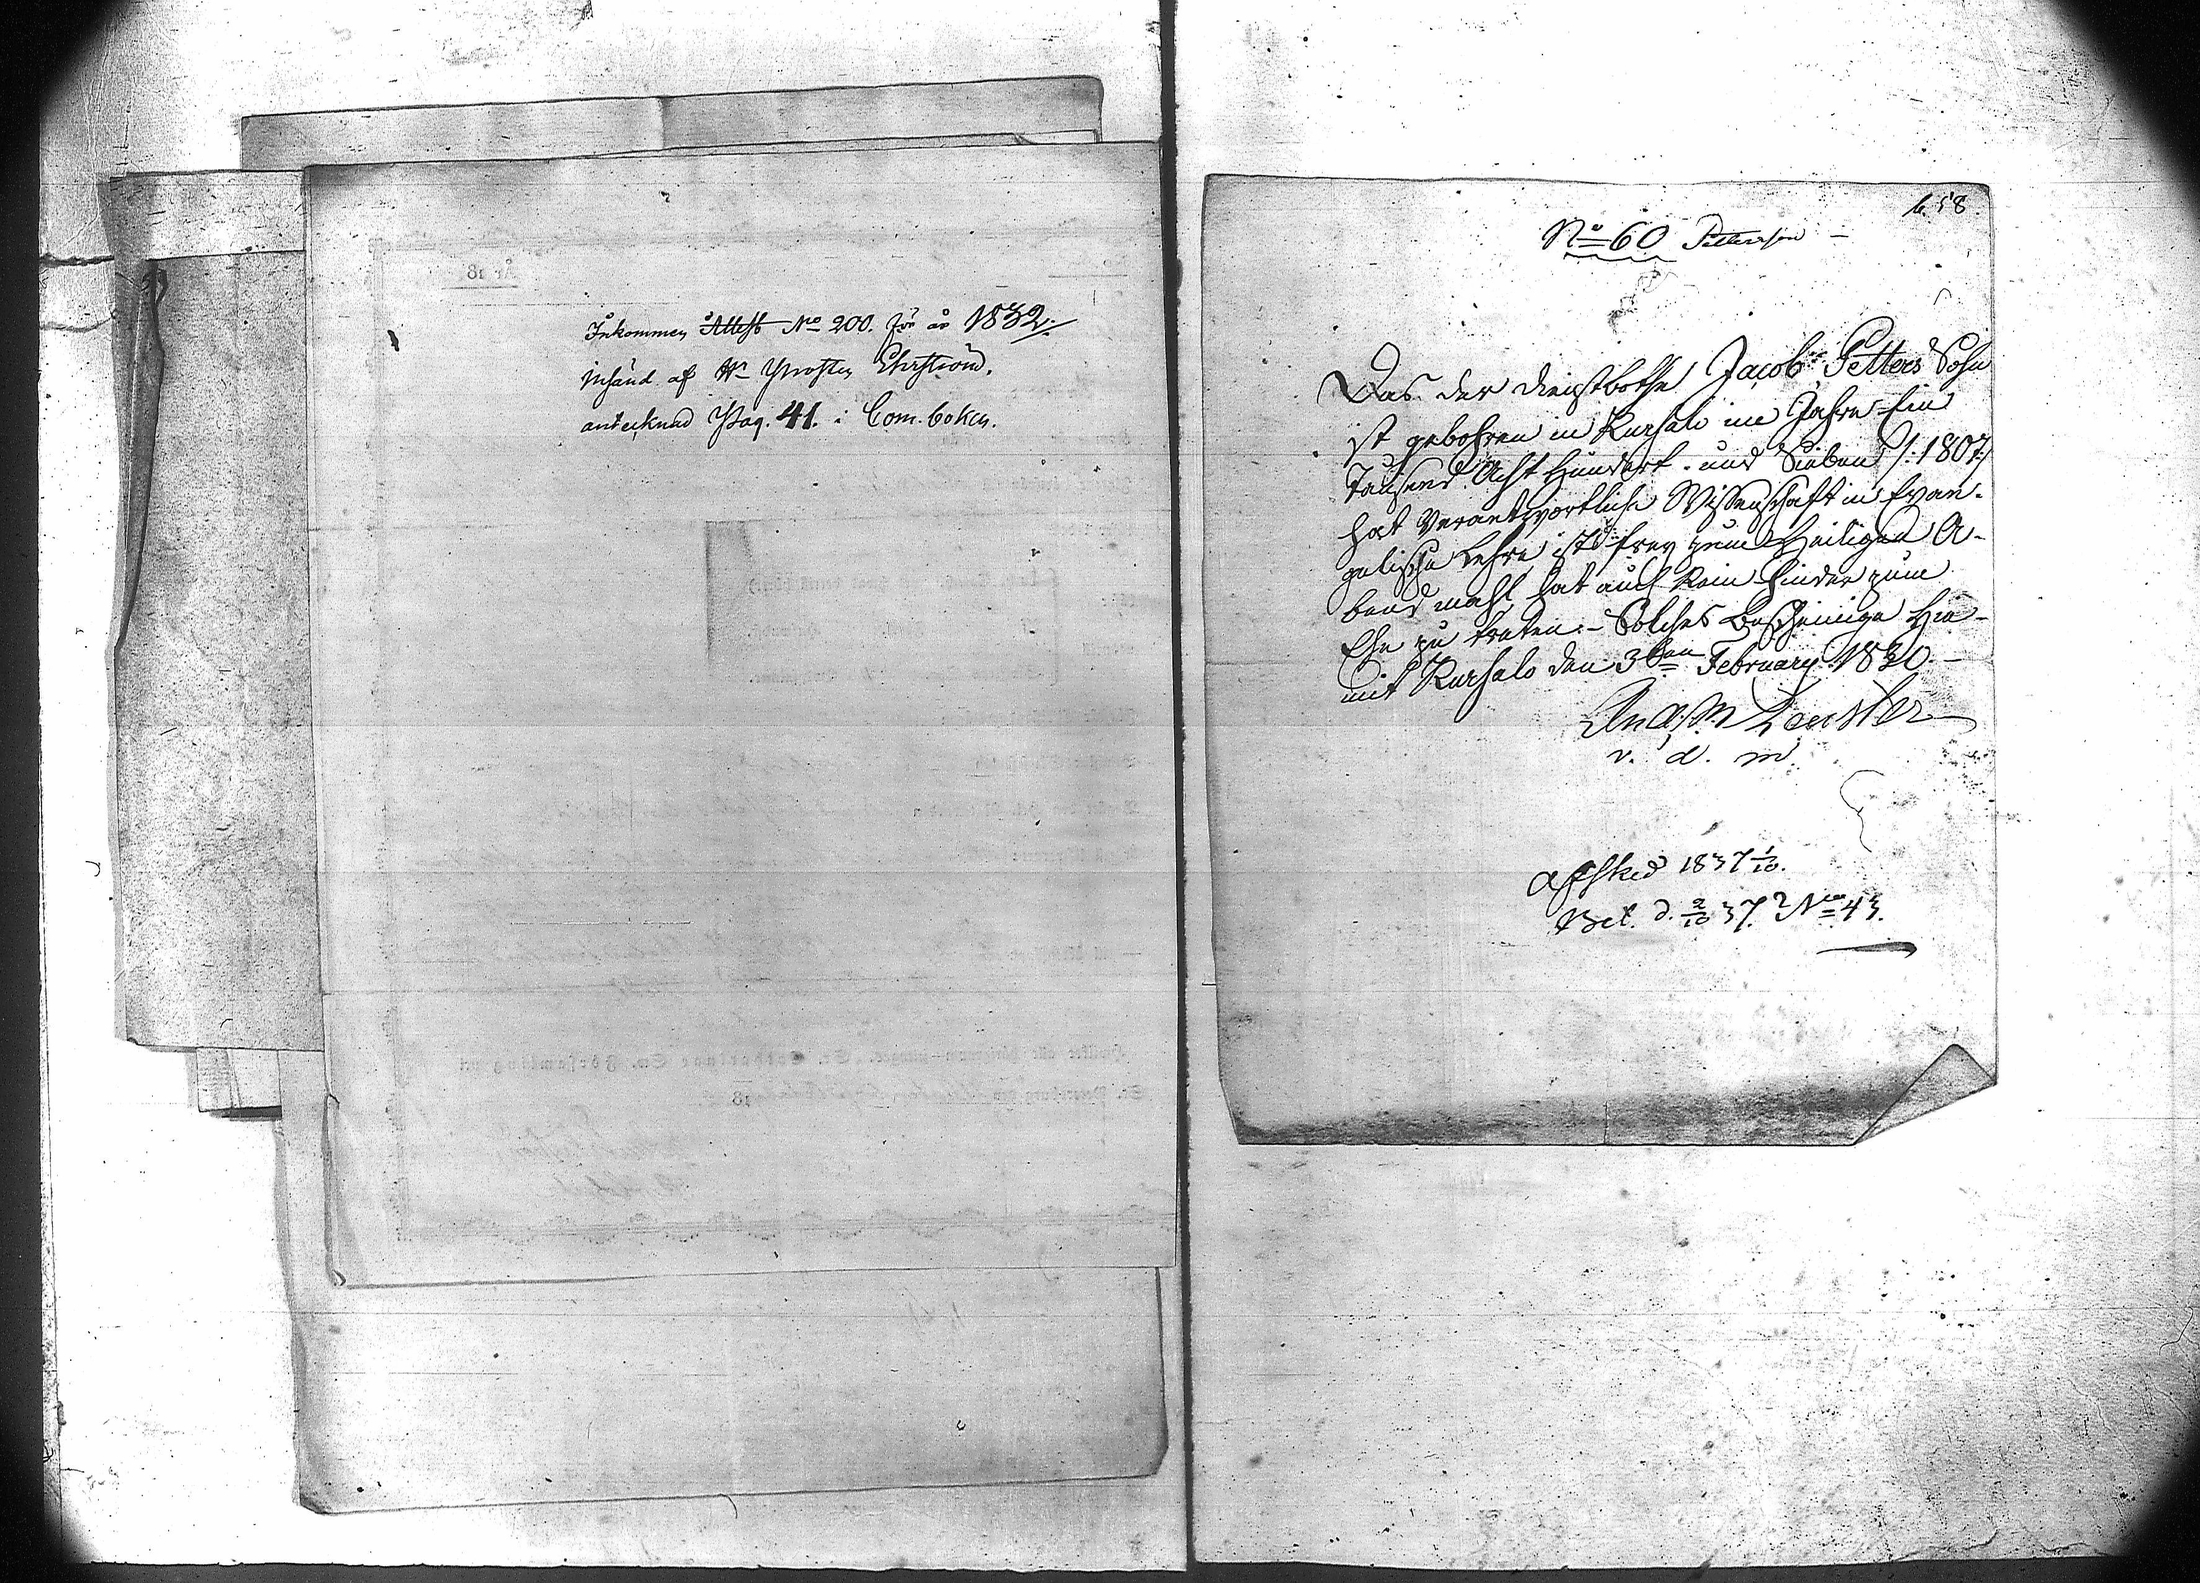 Inkommen Attest No 200. för år 1832
inhänd. af Hr Prosten Ehrström.
anteknad Pag. 41. i Com. boken.
b. 58.
No 60 Pettersson
Das der dienstbothe Jacob Petters Sohn
ist gebohren in Kursalo im Jahre Ein
Tausend Acht Hundert und Sieben /:1807:/
hat Verantwortliche Wissenschaft in Evan-
gelische Lehre ist frey zum Heiligen A-
bend mahl hat auch kein hinder zum
Ehe zu treten. – Solches Bescheinige Hie-
mit Kursalo den 3ten February 1830. –
v. d. m.
Afsked 1837 1/10.
Bet. d. 2/10 37. No 43.